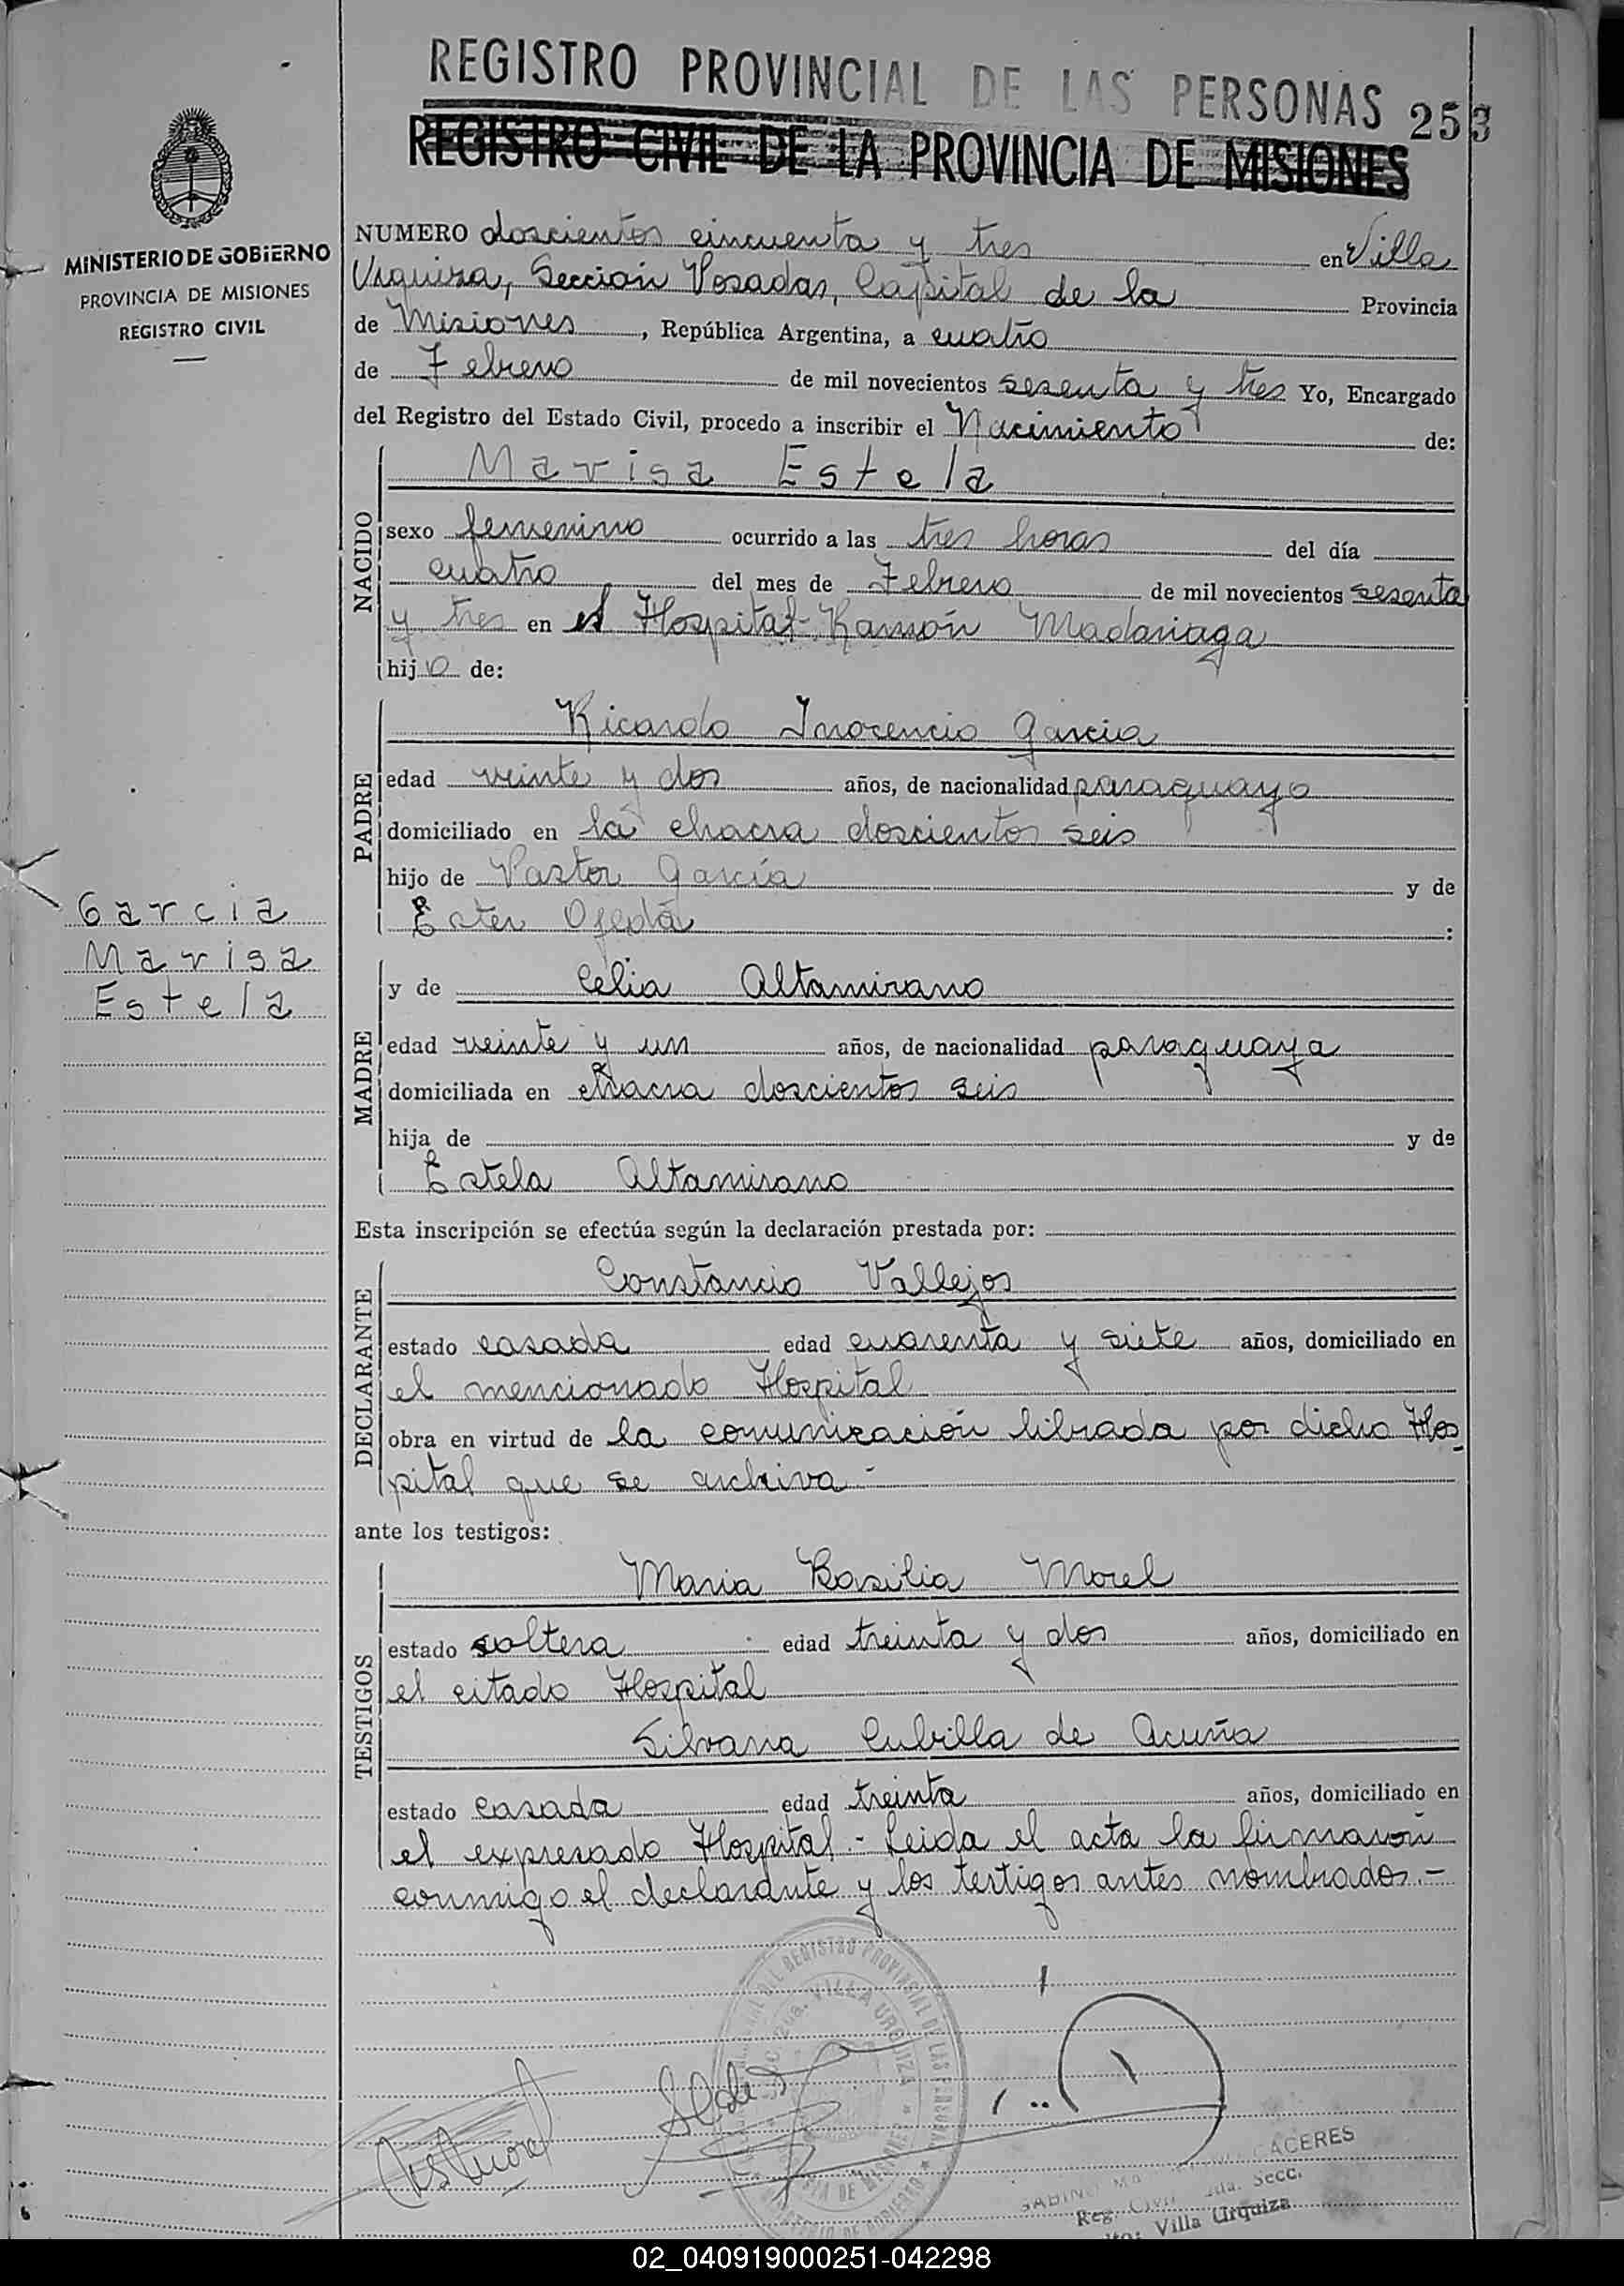 REGISTRO PROVINCIAL DE LAS PERSONAS 253
REGISTRO CIVIL DE LA PROVINCIA DE MISIONES
MINISTERIO DE GOBIERNO
PROVINCIA DE MISIONES
REGISTRO CIVIL
NUMERO doscientos cincuenta y tres en Villa
Urquiza, Sección Posadas, Capital de la Provincia
de Misiones, República Argentina, a cuatro
de Febrero de mil novecientos sesenta y tres Yo, Encargado
del Registro del Estado Civil, procedo a inscribir el Nacimiento de:
NACIDO
Marisa Estela
sexo femenino ocurrido a las tres horas del día
cuatro del mes de Febrero de mil novecientos sesenta
y tres en el Hospital Ramón Madariaga
hija de:
PADRE
Ricardo Inocencio Garcia
edad veinte y dos años, de nacionalidad paraguayo
domiciliado en la chacra doscientos seis
hijo de Pastor García y de
Ester Ojeda :
Garcia
Marisa
Estela
MADRE
y de Celia Altamirano
edad veinte y un años, de nacionalidad paraguaya
domiciliada en chacra doscientos seis
hija de y de
Estela Altamirano
Esta inscripción se efectúa según la declaración prestada por:
DECLARANTE
Constancio Vallejos
estado casada edad cuarenta y siete años, domiciliado en
el mencionado Hospital
obra en virtud de la comunicación librada por dicho Hos-
pital que se archiva.-
ante los testigos:
TESTIGOS
Maria Basilia Morel
estado soltera edad treinta y dos años, domiciliado en
el citado Hospital
Silvana Cubilla de Acuña
estado casada edad treinta años, domiciliado en
el expresado Hospital.- Leida el acta la firmaron
conmigo el declarante y los testigos antes nombrados.-
VILLA URQUIZA
CACERES
Reg. Civil 2da. Secc.
Villa Urquiza
02_040919000251-042298